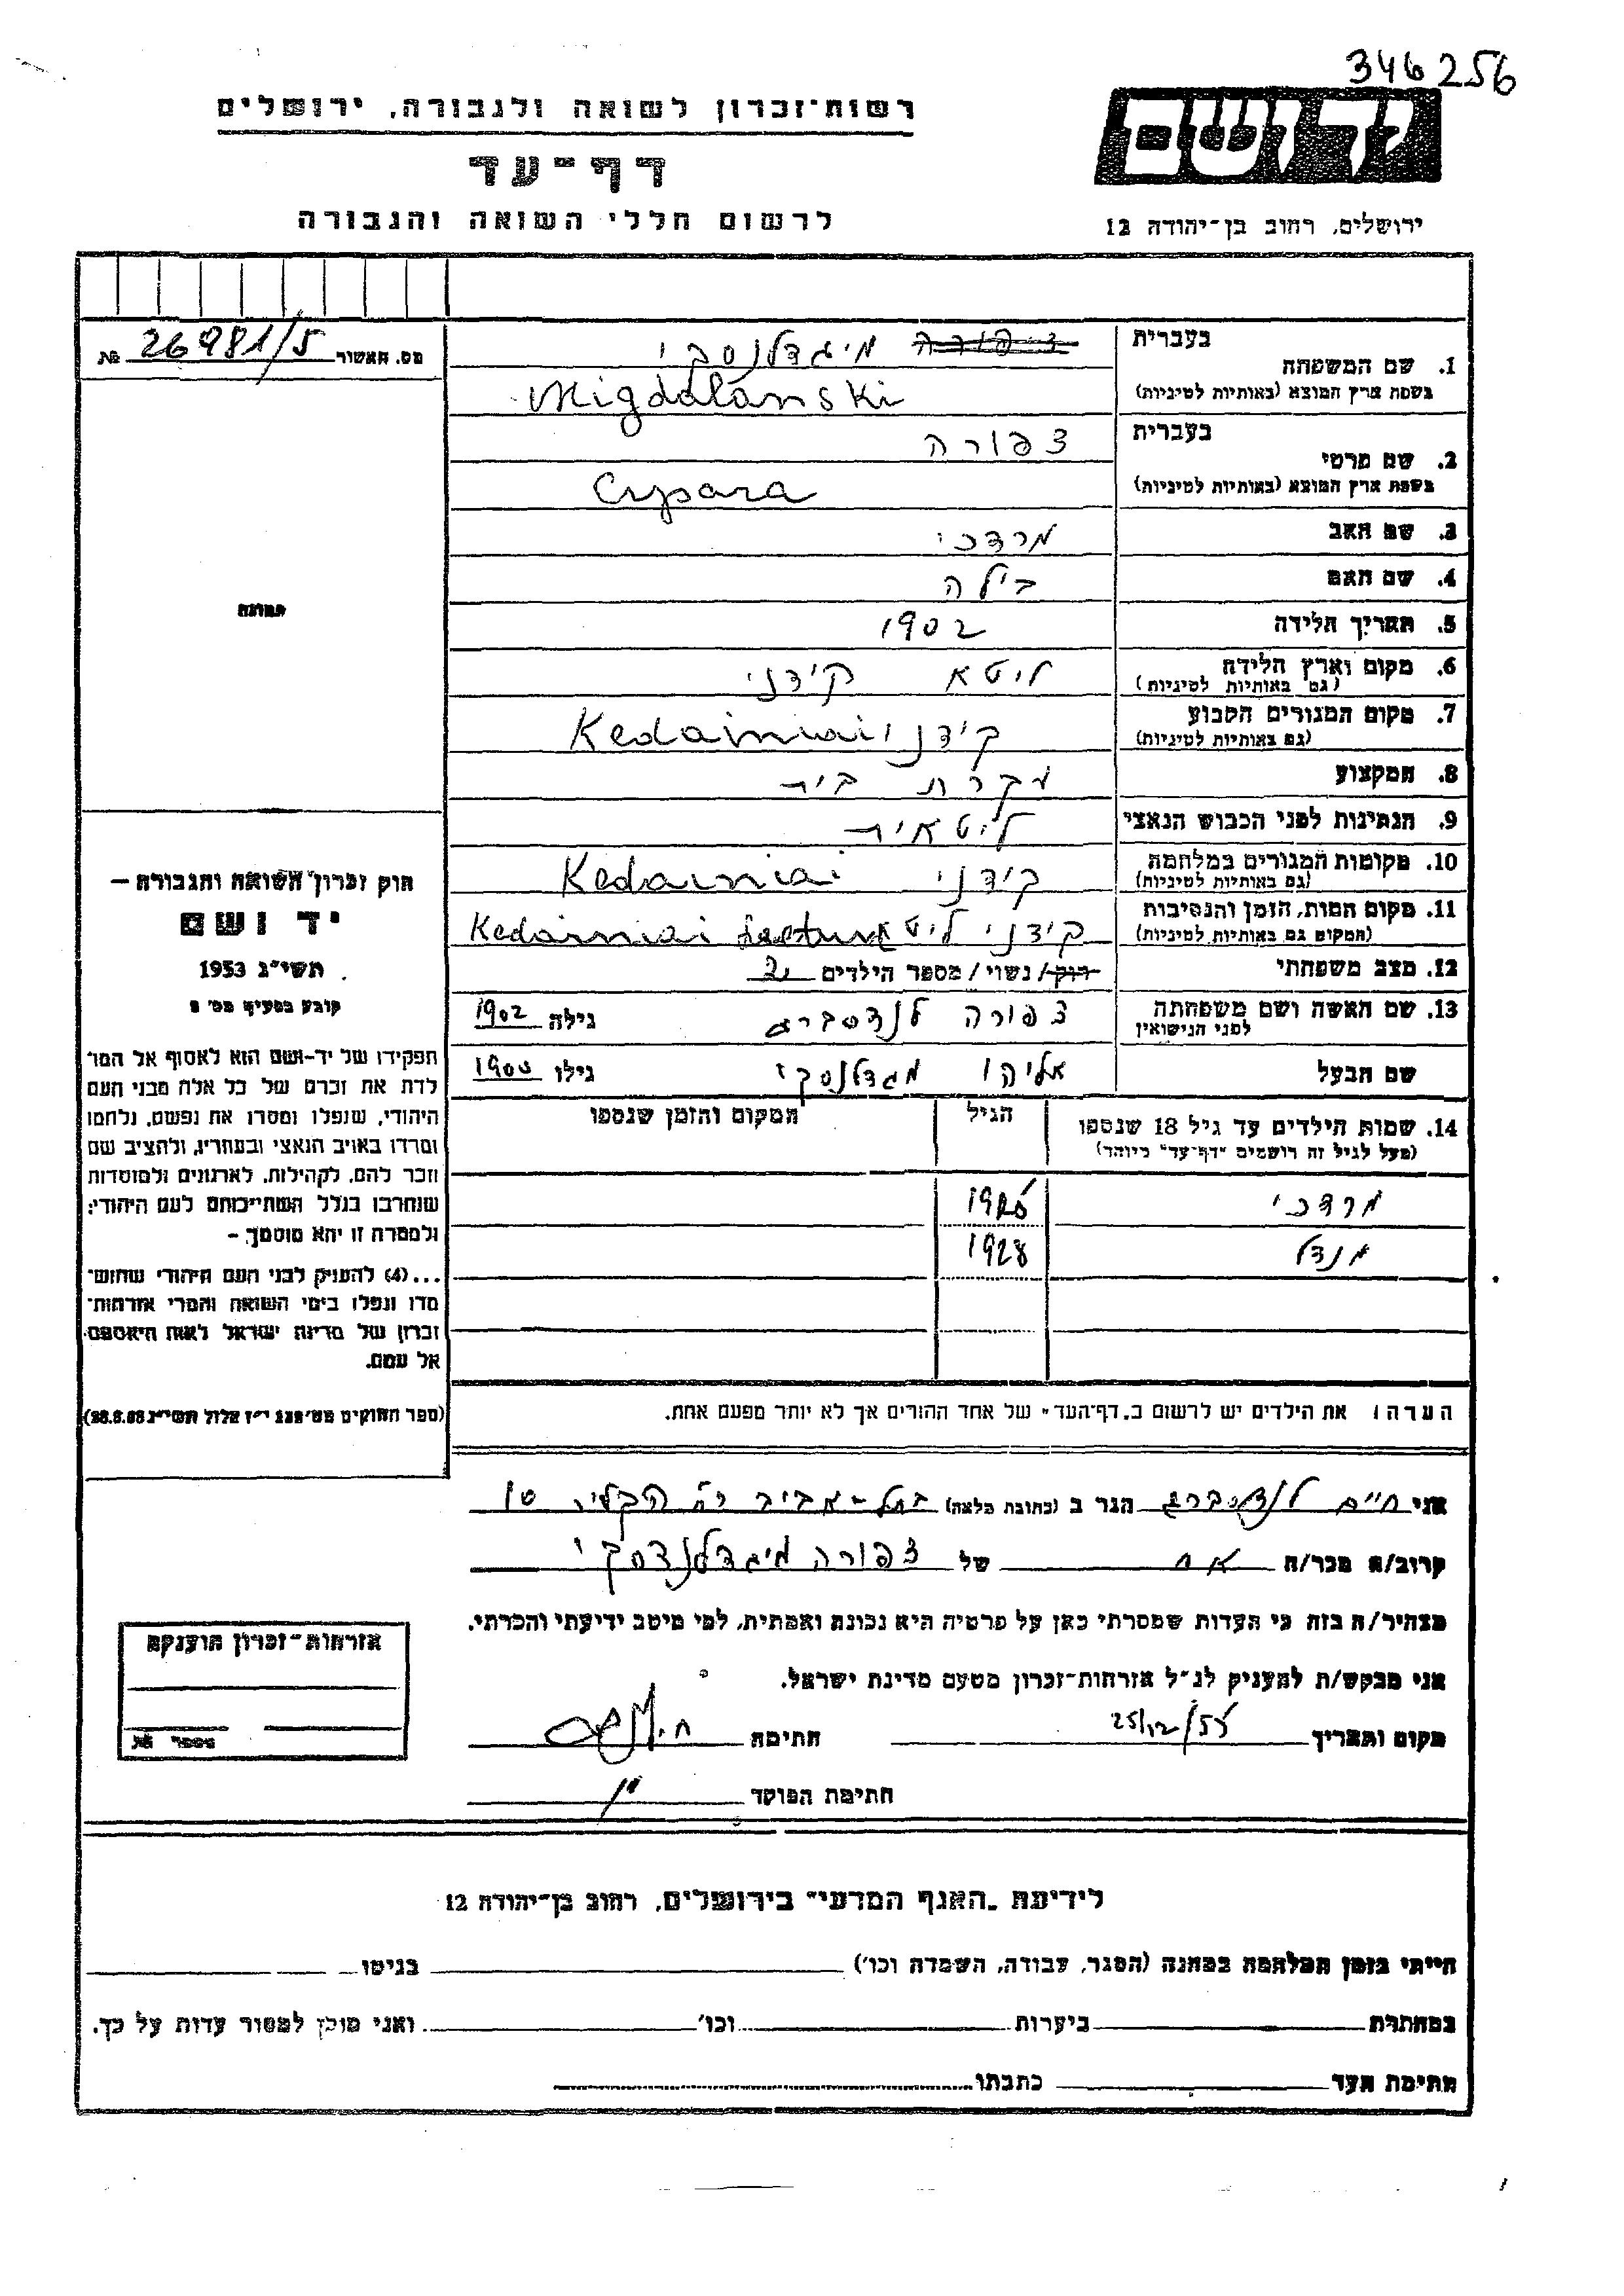 346256
ידושם
רשות־זכרון לשואה ולגבורה, ירושלים
דף־עד
לרשום חללי השואה והגבורה
ירושלים, רחוב בן־יהודה 12
מס. האשור 26981/5 №
תמונה
1. שם המשפחה בעברית צפורה מיגדלנסקי
בשפת ארץ המוצא (באותיות לטיניות) Migdalanski
2. שם פרטי בעברית צפורה
בשפת ארץ המוצא (באותיות לטיניות) Cypora
3. שם האב מרדכי
4. שם האם בילה
5. תאריך הלידה 1902
6. מקום וארץ הלידה (גם באותיות לטיניות) ליטא קידני
7. מקום המגורים הקבוע (גם באותיות לטיניות) קידני Kedainiai
8. המקצוע עקרת בית
9. הנתינות לפני הכבוש הנאצי ליטאית
10. מקומות המגורים במלחמה (גם באותיות לטיניות) קידני Kedainiai
11. מקום המות, הזמן והנסיבות (המקום גם באותיות לטיניות) קידני ליטא Kedainiai
12. מצב משפחתי רוק/ נשוי/ מספר הילדים 2
13. שם האשה ושם משפחתה לפני הנישואין צפורה לנדסברג גילה 1902
שם הבעל אליהו מגדלנסקי גילו 1900
14. שמות הילדים עד גיל 18 שנספו הגיל המקום והזמן שנספו
(מעל לגיל זה רושמים "דף־עד" מיוחד)
מרדכי
מנדל 1928
הערה: את הילדים יש לרשום ב"דף־העד" של אחד ההורים אך לא יותר מפעם אחת.
חוק זכרון השואה והגבורה —
יד ושם
תשי"ג 1953
קובע בסעיף מס'
תפקידו של יד־ושם הוא לאסוף אל המו־
לדת את זכרם של כל אלה מבני העם
היהודי, שנפלו ומסרו את נפשם, נלחמו
ומרדו באויב הנאצי ובעוזריו, ולהציב שם
וזכר להם, לקהילות, לארגונים ולמוסדות
שנחרבו בגלל השתייכותם לעם היהודי;
ולמטרה זו יהא מוסמך —
...(4) להעניק לבני העם היהודי שהוש־
מדו ונפלו בימי השואה והמרי אזרחות־
זכרון של מדינת ישראל לאות היאספם
אל עמם.
(ספר החוקים מס' 132 י"ז אלול תשי"ג
אני חיים לנדסברג הגר ב (כתובת מלאה) בתל־אביב רח' 10
קרוב/ה מכר/ה אח של צפורה מיגדלנדסקי
מצהיר/ה בזה כי העדות שמסרתי כאן על פרטיה היא נכונה ואמתית, לפי מיטב ידיעתי והכרתי.
אני מבקש/ת להעניק לנ"ל אזרחות־זכרון מטעם מדינת ישראל.
מקום ותאריך 25/12/55 חתימה
חתימת הפוקד
אזרחות־זכרון הוענקה
מספר №
לידיעת "האגף המדעי" בירושלים, רחוב בן־יהודה 12
הייתי בזמן המלחמה במחנה (הסגר, עבודה, השמדה וכו') בגיטו
במחתרת ביערות וכו' ואני מוכן למסור עדות על כך.
חתימת העד כתבתו